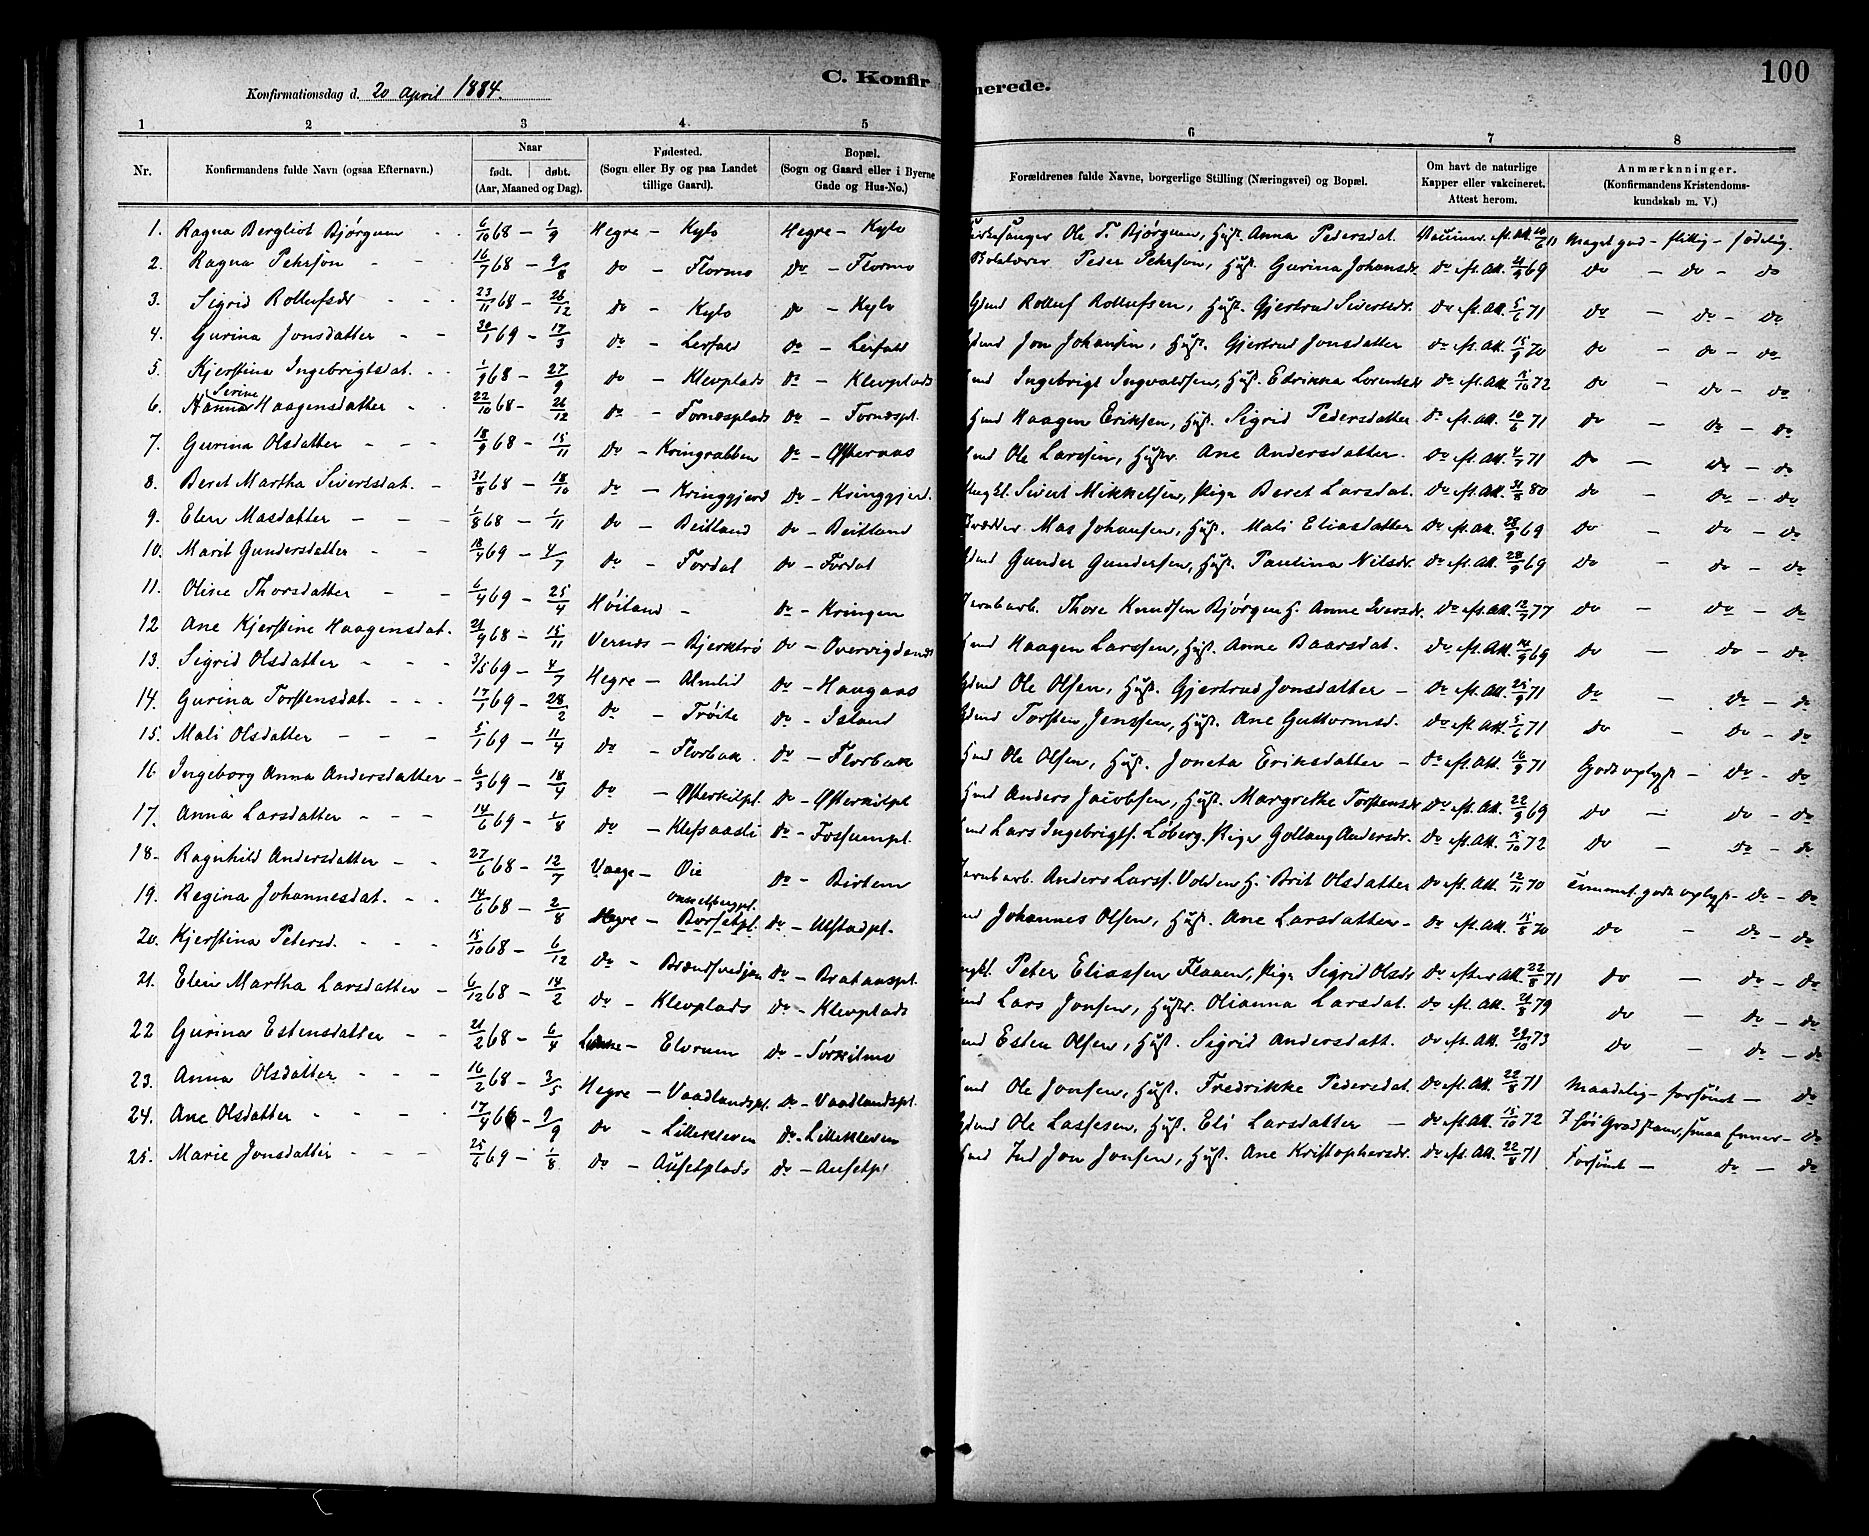 C. Konfirmerede.
100
Konfirmationsdag d. 20 April 1884.
1 2 3 4. 5 6 7 8
Nr. Konfirmandens fulde Navn (ogsaa Efternavn.) Naar født. døbt. (Aar, Maaned og Dag). Fødested. (Sogn eller By og paa Landet tillige Gaard). Bopæl. (Sogn og Gaard eller i Byerne Gade og Hus-No.) Forældrenes fulde Navne, borgerlige Stilling (Næringsvei) og Bopæl. Om havt de naturlige Kopper eller vakcineret. Attest herom. Anmærkninger. (Konfirmandens Kristendomskundskab m. V.)
1. Ragna Bergliot Bjørgum - - 6/10 68 - 1/9 Hegre - Kylo Hegre - Kylo Kirkesanger Ole T. Bjørgum, Hust. Anna Pedersdat. Vacciner. eft. Att. Meget god - flittig - sædelig.
2. Ragna Pehrson - - - 16/7 68 - 9/8 do - Flormo do - Flormo Peder Pehrson, Hust. Gurina Johansdr do eft. Att. 21/9 69 do - do - do
3. Sigrid Rollufsdr - - - 23/11 68 - 26/12 do - Kylo do - Kylo Gmd Rolluf Rollufsen, Hust. Gjertrud Sivertsdr. do eft. Att. 5/6 71 do - do - do
4. Gurina Jonsdatter - - 30/1 69 - 17/3 do - Leirfald do - Leirfald Gmd Jon Johansen, Hust. Gjertrud Jonsdatter do eft. Att. 15/9 70 do - do - do
5. Kjerstina Ingebrigtsdat. - - 1/9 68 - 27/9 do - Klevplads do - Klevplads Hmd Ingebrigt Ingvaldsen, Hust. Edrikka Lorentsdr do eft. Att. 15/10 72 do - do - do
6. Hanna Serine Haagensdatter - 22/10 68 - 26/12 do - Fornæsplads do - Fornæspl. Hmd Haagen Eriksen, Hust. Sigrid Pedersdatter do eft. Att. 10/6 71 do - do - do
7. Gurina Olsdatter - - - 18/9 68 - 15/11 do - Kringrabben do - Østeraas Hmd Ole Larssen, Hustr. Ane Andersdatter. do eft. Att. 4/7 71 do - do - do
8. Beret Martha Sivertsdat. - 31/8 68 - 18/10 do - Kringgjerd do - Kringgjerd. Ungkl. Sivert Mikkelsen, Pige Beret Larsdat. do eft. Att. 31/8 80 do - do - do
9. Elen Masdatter - - - 1/8 68 - 1/11 do - Beitland do - Beitland Mas Johansen, Hust. Mali Eliasdatter do eft. Att. 28/9 69 do - do - do
10. Marit Gundersdatter - - 18/4 69 - 4/7 do - Fordal do - Fordal Gmd Gunder Gundersen, Hust. Paulina Nilsdr. do eft. Att. 28/9 69 do - do - do
11. Oline Thorsdatter - - 6/4 69 - 25/4 Høiland - do - Kringen Jernbarb. Thore Knudsen Bjørgen H. Anne Iversdr. do eft. Att. 12/7 77 do - do - do
12 Ane Kjerstine Haagensdat. 21/9 68 - 15/11 Vernes - Bjerktrø do - Hmd Haagen Larssen, Hust. Anne Baarsdat. do eft. Att. 14/9 69 do - do - do
13. Sigrid Olsdatter - - - 3/5 69 - 4/7 Hegre - Almlid do - Haugaas Gmd Ole Olsen, Hust. Gjertrud Jonsdatter - do eft. Att. 25/9 71 do - do - do
14. Gurina Torstensdat. - - - 17/1 69 - 28/2 do - Trøite do - Island Gmd Torsten Jenssen, Hust. Ane Guttormsd. do eft. Att. 5/6 71 do - do - do
15. Mali Olsdatter - - - 5/1 69 - 11/4 do - Florbak. do - Florbak Hmd Ole Olsen, Hust. Joneta Eriksdatter - do eft. Att. 16/9 71 Godt oplyst - do - do
16 Ingeborg Anna Andersdatter - 6/3 69 - 18/4 do - Østerkilpl. do - Østerkilpl Hmd Anders Jacobsen, Hust. Margrethe Torstensdr do eft. Att. 22/9 69 do - do - do
17. Anna Larsdatter - - - 14/6 69 - 1/8 do - Klefsaasli do - Fossumpl. Lars Ingebrigts. Loberg, Pige Gollaug Andersdr. do eft. Att. 15/10 72 do - do - do
18. Ragnhild Andersdatter - - 27/6 68 - 12/7 Vaage - Øie do - Birtem Jernbarb. Anders Larss. Volden H. Brit Olsdatter do eft. Att. 12/11 70 Temmel. godt oplyst - do - do
19. Regina Johannesdat. - - 14/6 68 - 2/8 Hegre - Borsetpl. do - Ulstadpl. Johannes Olsen, Hust. Ane Larsdatter - do eft. Att. 15/8 70 do - do - do
20. Kjerstina Petersd. - - - 15/10 68 - 6/12 do - do - Brataaspl. Ungkl. Peter Eliassen Flaaen, Pige Sigrid Olsdr do efter Att. 22/8 71 do - do - do
21. Elen Martha Larsdatter - 6/12 68 - 14/2 do - Klevplads do - Klevplads Hmd Lars Jonsen, Hustr. Olianna Larsdat. do eft. Att. 21/8 79 do - do - do
22 Gurina Estensdatter - - 21/2 68 - 6/4 - Elvrum do - Sørkilmo Hmd Esten Olsen, Hust. Sigrid Andersdatt. do eft. Att. 29/10 73 do - do - do
23. Anna Olsdatter - - - 16/2 68 - 3/5 Hegre - Vaadlandspl. do - Vaadlandspl. Hmd Ole Jonsen, Hust. Fredrikke Pedersdat. do eft. Att. 22/8 71 Maadelig - forsømt - do
24. Ane Olsdatter - - - 17/4 66 - 9/9 do - Lillekleven do - Lillekleven Gmd Ole Lassesen, Hust. Eli Larsdatter - do eft. Att. 15/10 72 I høi Grad stam, smaa Evner - do
25. Marie Jonsdatter - - - 25/6 69 - 1/8 do - Aufetplads do - Aufetpl Hmd Ind Jon Jonsen, Hust. Ane Kristophersdr. do eft. Att. 22/8 71 Forsømt - do - do